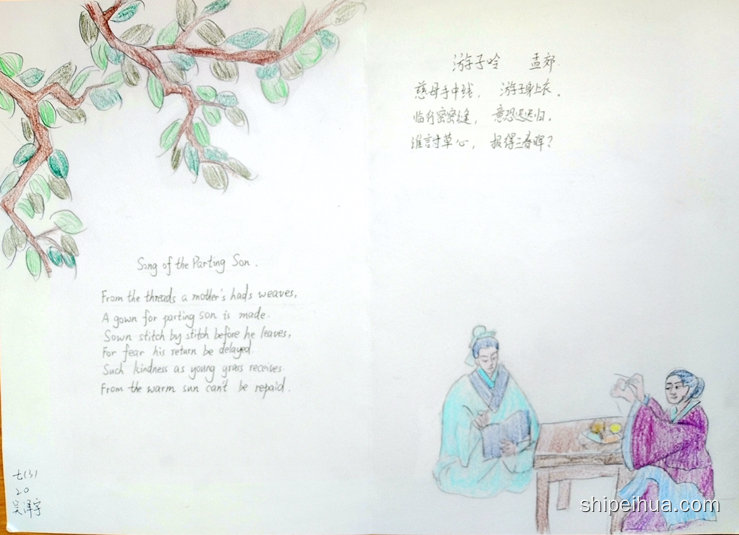 游子吟 孟郊
慈母手中线， 游子身上衣。
临行密密缝， 意恐迟迟归。
谁言寸草心， 报得三春晖？
Song of the Parting Son.
From the threads a mother's hads weaves,
A gown for parting son is made.
Sown stitch by stitch before he leaves,
For fear his return be delayed.
Such kindness as young grass receives
From the warm sun can't be repaid.
七(3)
20
吴泽宇
shipeihua.com